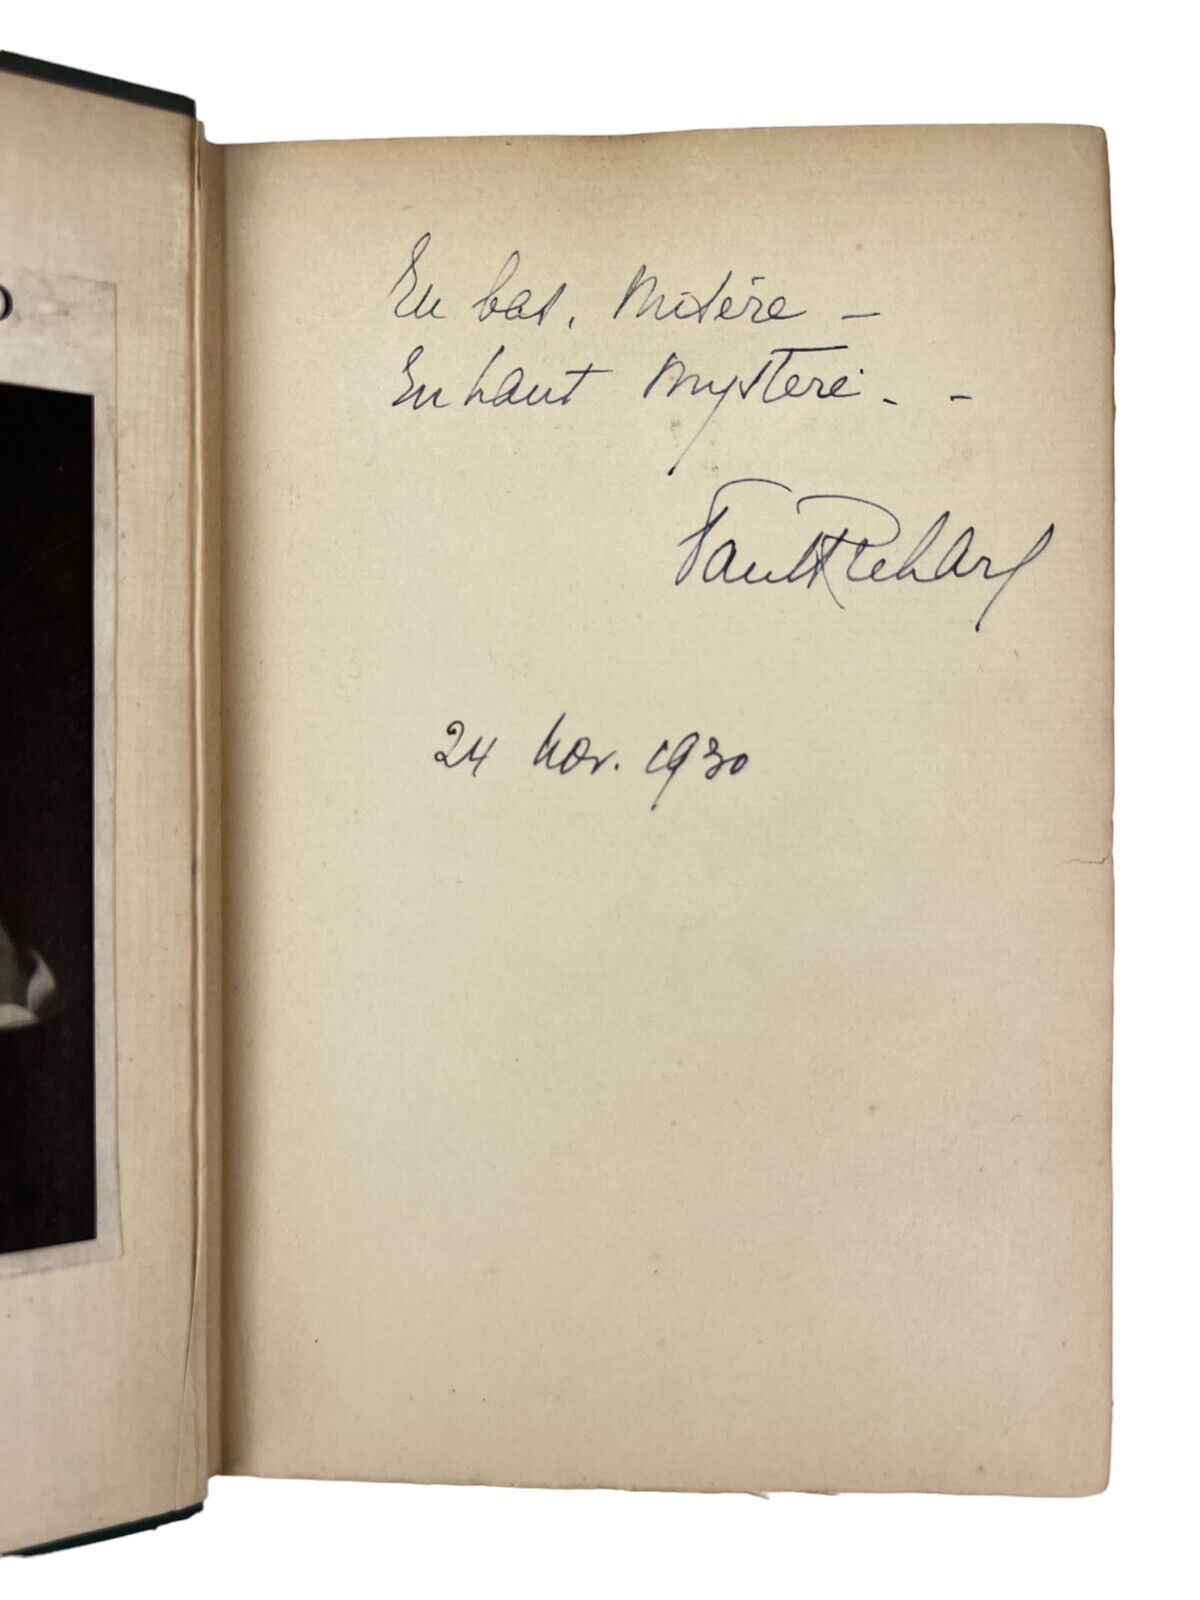 O
En bas, Misère –
En haut Mystère. - -
Paul Richard
24 Nov. 1930